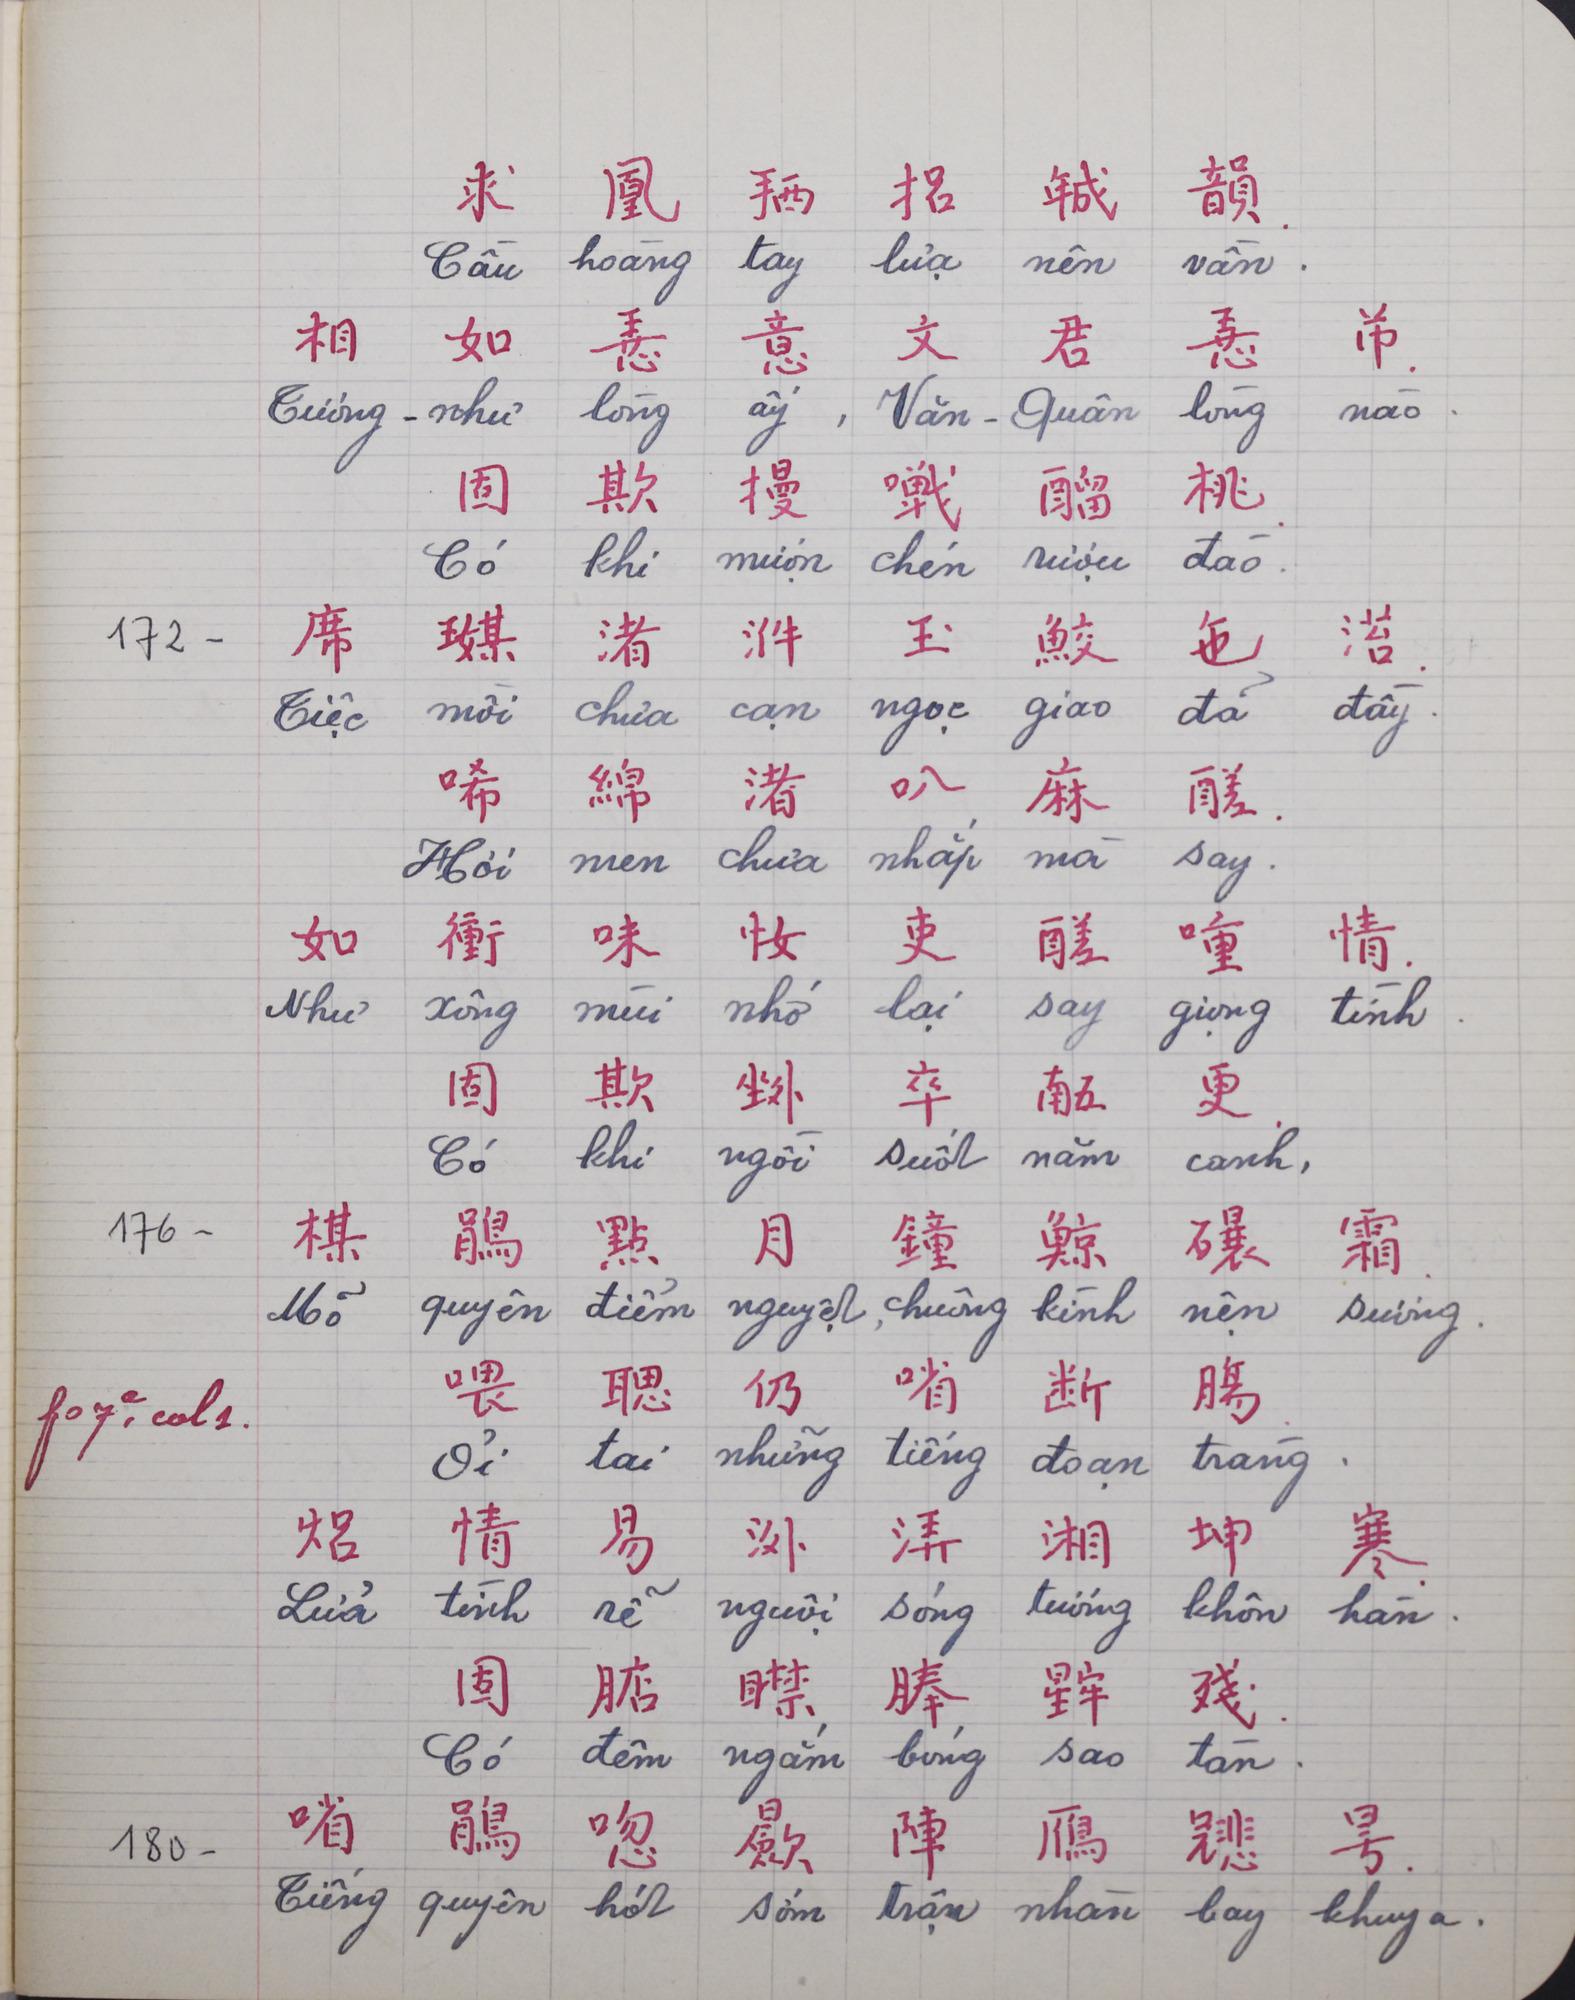 求 凰 拪 招 𢆥成 韻.
Cầu hoàng tay lựa nên vần.
相 如 𢚸 意 文 君 𢚸 芇.
Tướng-như lòng ấy, Văn-Quân lòng nào.
固 欺 摱 𡃹 醖 桃.
Có khi mượn chén rượu đào.
172- 席 媒 渚 汼 玉 鮫 㐌 𣹓.
Tiệc mồi chưa cạn ngọc giao đả đầy.
唏 綿 渚 叺 麻 醝.
Hơi men chưa nhắp mà say.
如 衝 味 𢖵 吏 醝 喠 情.
Như xông mùi nhớ lại say giọng tình.
固 欺 𡎥 卒 𠄼 更.
Có khi ngồi suốt năm canh,
176- 楳 鵑 點 月 鐘 鯨 碾 霜.
Mỏ quyên điểm nguyệt, chuông kình nện sương.
f° 7a, col 1. 喂 聰 仍 㗂 断 腸.
Ỏi tai những tiếng đoạn tràng.
焒 情 易 𣼪 㳥 湘 坤 寒.
Lửa tình rễ nguội sóng tương khôn hàn.
固 𣎀 𥋴 䏾 𣋀 残.
Có đêm ngắm bóng sao tàn.
180- 㗂 鵑 唿 𣌋 陣 鴈 𢒎 𣌉.
Tiếng quyên hót sớm trận nhàn bay khuya.